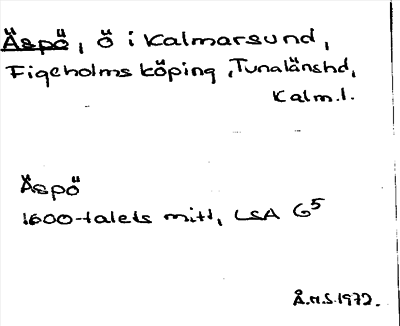 Äspö, ö i Kalmarsund,
Figeholms köping, Tunalänshd,
Kalm.l.
Äspö
1600-talets mitt, LSA G5
Å.H.S. 1972.